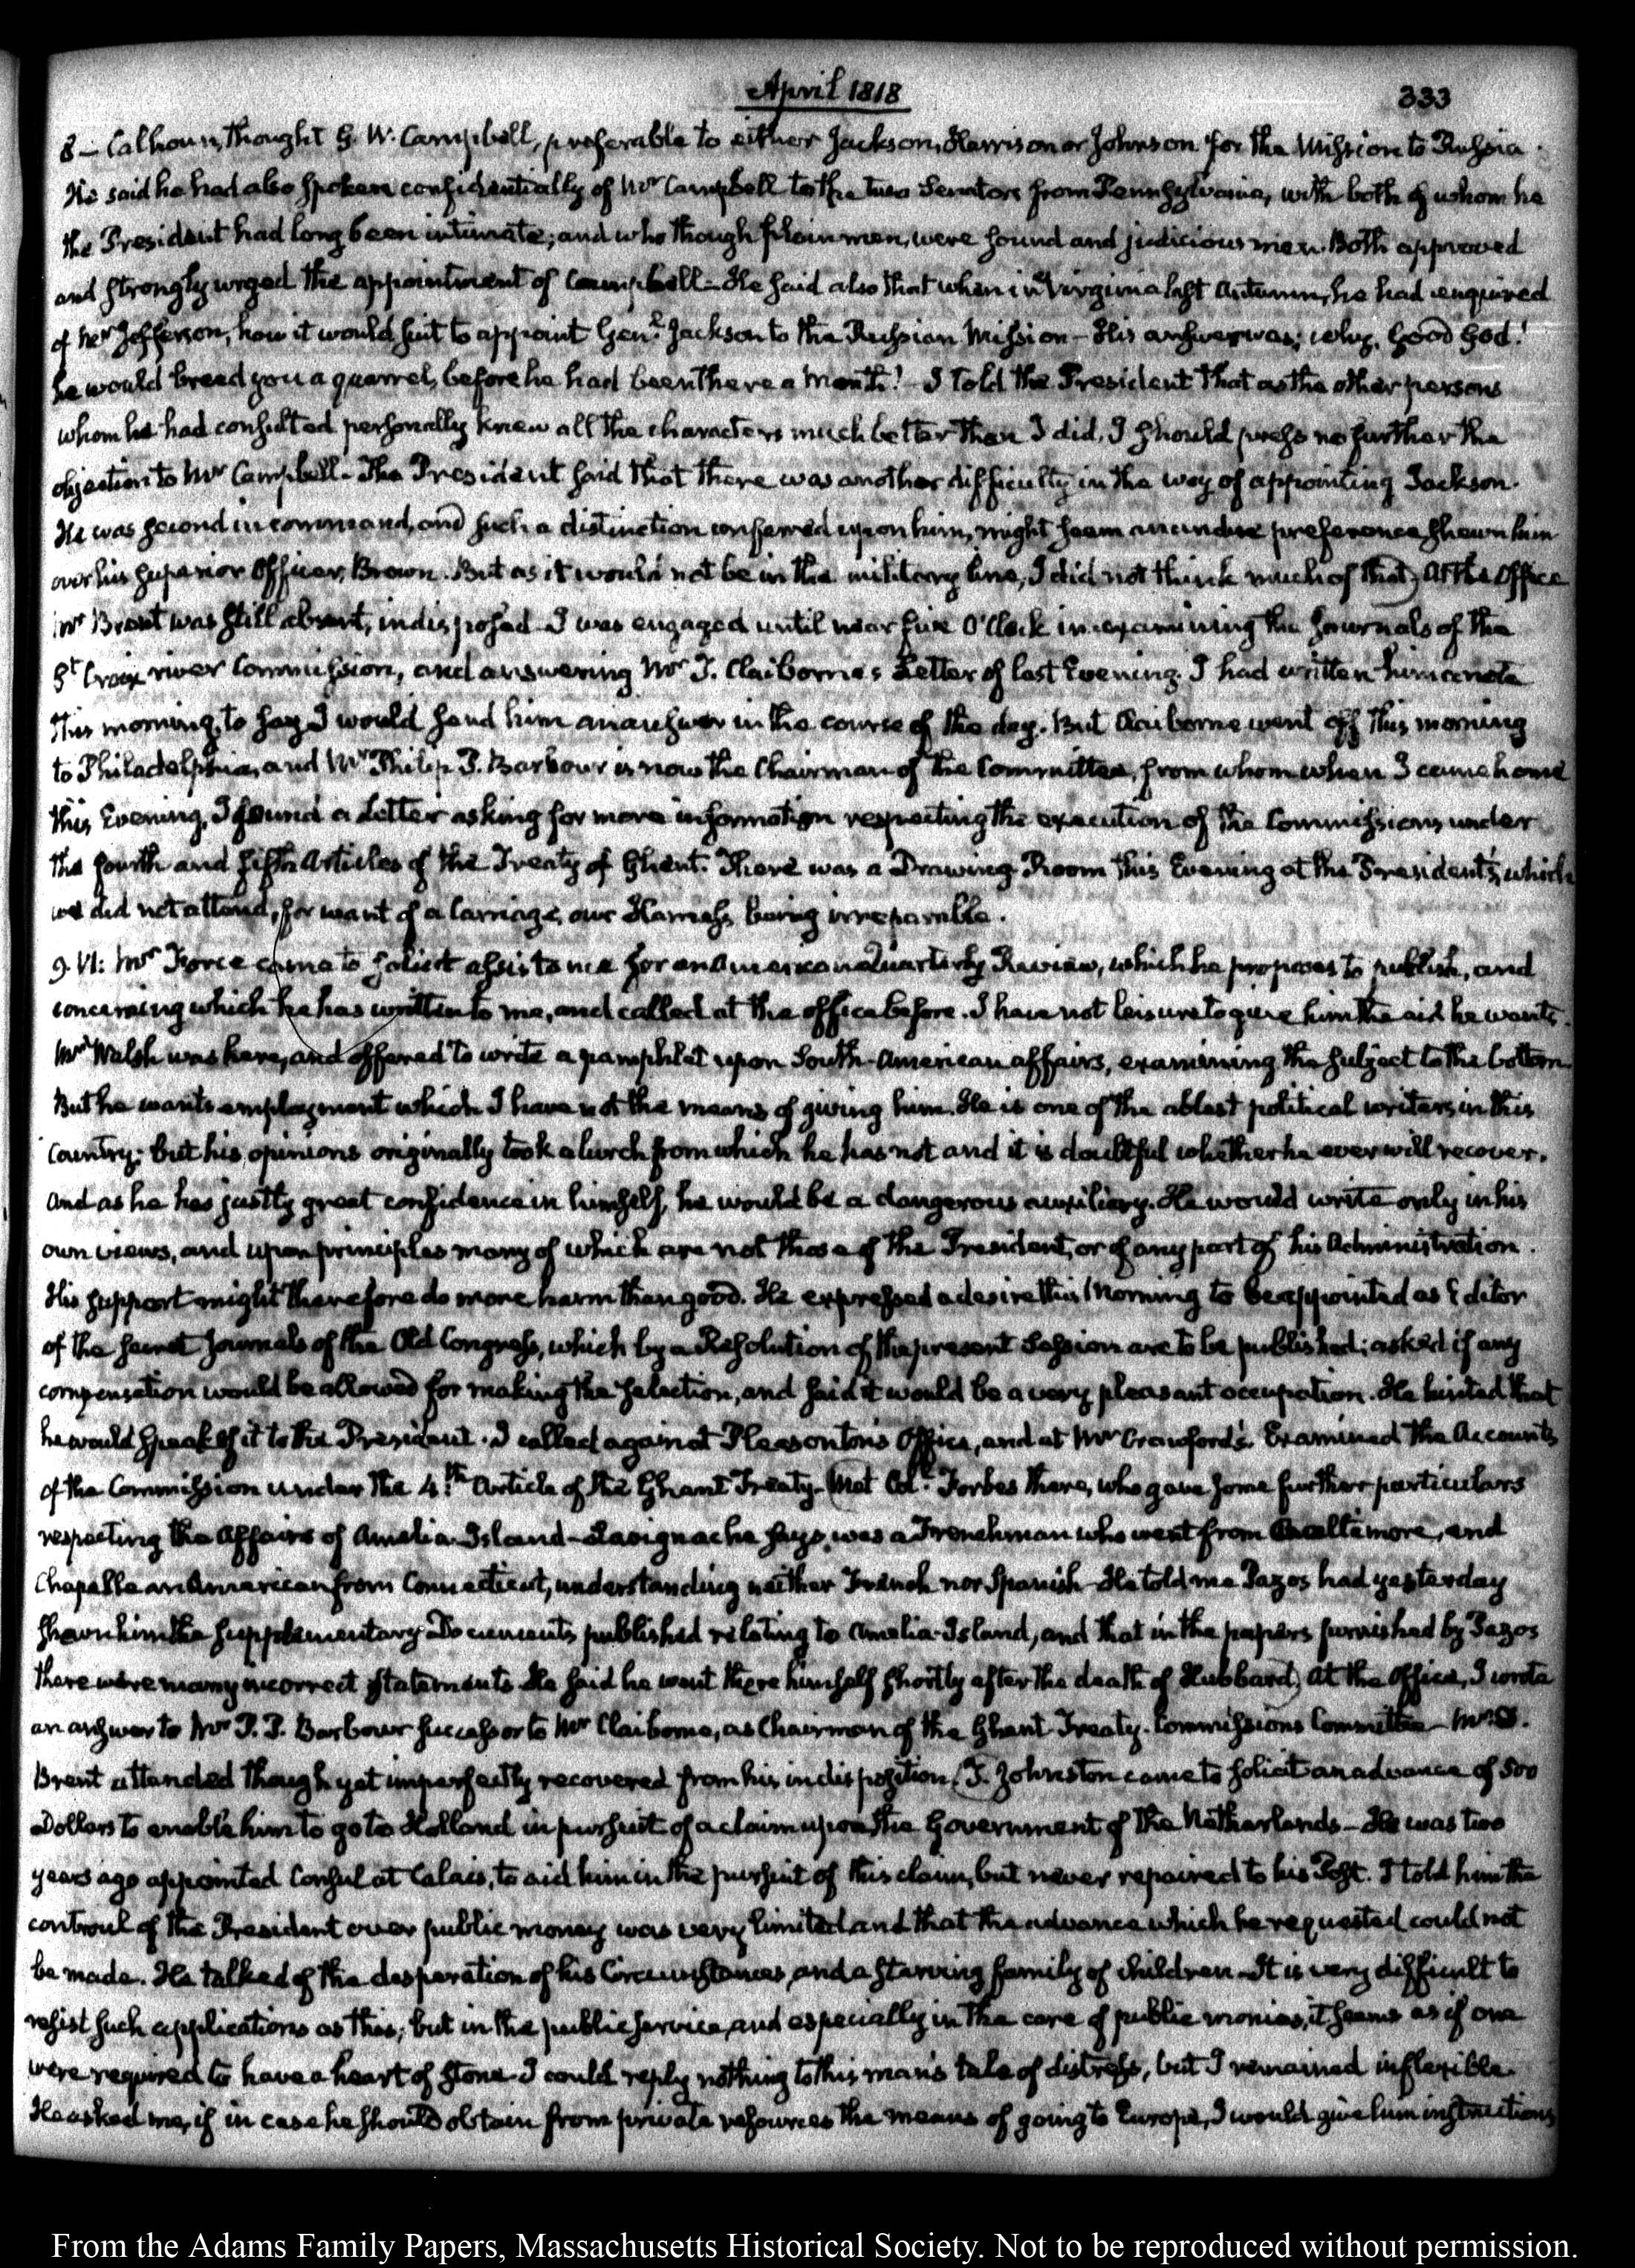 April 1818
333
8 — Calhoun, thought G. W. Campbell, preferable to either Jackson, Harrison or Johnson for the Mission to Russia.
He said he had also spoken confidentially of Mr Campbell to the two Senators from Pennsylvania, with both of whom he
the President had long been intimate; and who though plain men, were sound and judicious men. Both approved
and strongly urged the appointment of Campbell — He said also that when in Virginia last Autumn, he had enquired
of Mr Jefferson, how it would suit to appoint Genl. Jackson to the Russian Mission — His answer was; why, Good God!
he would breed you a quarrel, before he had been there a month! — I told the President that as the other persons
whom he had consulted personally knew all the characters much better than I did, I should press no further the
objection to Mr Campbell — The President said that there was another difficulty in the way of appointing Jackson.
He was second in command, and such a distinction conferred upon him, might seem an undue preference shewn him
over his superior Officer, Brown. But as it would not be in the military line, I did not think much of that. At the Office
Mr Brent was still absent, indisposed — I was engaged until near five O'Clock in examining the Journals of the
St. Croix river Commission, and answering Mr T. Claiborne's Letter of last Evening. I had written him a note
this morning, to say I would send him an answer in the course of the day. But Claiborne went off this morning
to Philadelphia, and Mr Philip P. Barbour is now the Chairman of the Committee, from whom when I came home
this Evening, I found a Letter asking for more information respecting the execution of the Commissions under
the fourth and fifth Articles of the Treaty of Ghent. There was a Drawing-Room this Evening at the President's, which
we did not attend, for want of a Carriage, our Harness being irreparable.
9. VI: Mr Force came to solicit assistance for an American Quarterly Review, which he proposes to publish, and
concerning which he has written to me, and called at the office before. I have not leisure to give him the aid he wants.
Mr Walsh was here, and offered to write a pamphlet upon South-American affairs, examining the subject to the bottom.
But he wants employment which I have not the means of giving him. He is one of the ablest political writers in this
Country: but his opinions originally took a lurch from which he has not and it is doubtful whether he ever will recover.
And as he has justly great confidence in himself, he would be a dangerous auxiliary. He would write only in his
own views, and upon principles many of which are not those of the President, or of any part of his Administration.
His support might therefore do more harm than good. He expressed a desire this Morning to be appointed as Editor
of the secret Journals of the Old Congress, which by a Resolution of the present Session are to be published; asked if any
compensation would be allowed for making the selection, and said it would be a very pleasant occupation. He hinted that
he would speak of it to the President. I called again at Pleasonton's Office, and at Mr Crawford's. Examined the Accounts
of the Commission under the 4th. Article of the Ghent Treaty — Met Coll. Forbes there, who gave some further particulars
respecting the Affairs of Amelia-Island — Lavignac he says, was a Frenchman who went from Baltimore, and
Chapelle an American from Connecticut, understanding neither French nor Spanish — He told me Pazos had yesterday
shewn him the supplementary Documents published relating to Amelia-Island, and that in the papers furnished by Pazos
there were many incorrect statements — He said he went there himself shortly after the death of Hubbard. At the Office, I wrote
an answer to Mr P. P. Barbour successor to Mr Claiborne, as Chairman of the Ghent Treaty-Commissions Committee — Mr D.
Brent attended though yet imperfectly recovered from his indisposition. J. Johnston came to solicit an advance of 500
Dollars to enable him to go to Holland in pursuit of a claim upon the Government of the Netherlands — He was two
years ago appointed Consul at Calais, to aid him in the pursuit of this claim, but never repaired to his Post. I told him the
controul of the President over public money was very limited and that the advance which he requested could not
be made. He talked of the desperation of his Circumstances, and a starving family of children — It is very difficult to
resist such applications as this; but in the public service, and especially in the care of public monies, it seems as if one
were required to have a heart of stone — I could reply nothing to this man's tale of distress, but I remained inflexible.
He asked me, if in case he should obtain from private resources the means of going to Europe, I would give him instructions
From the Adams Family Papers, Massachusetts Historical Society. Not to be reproduced without permission.